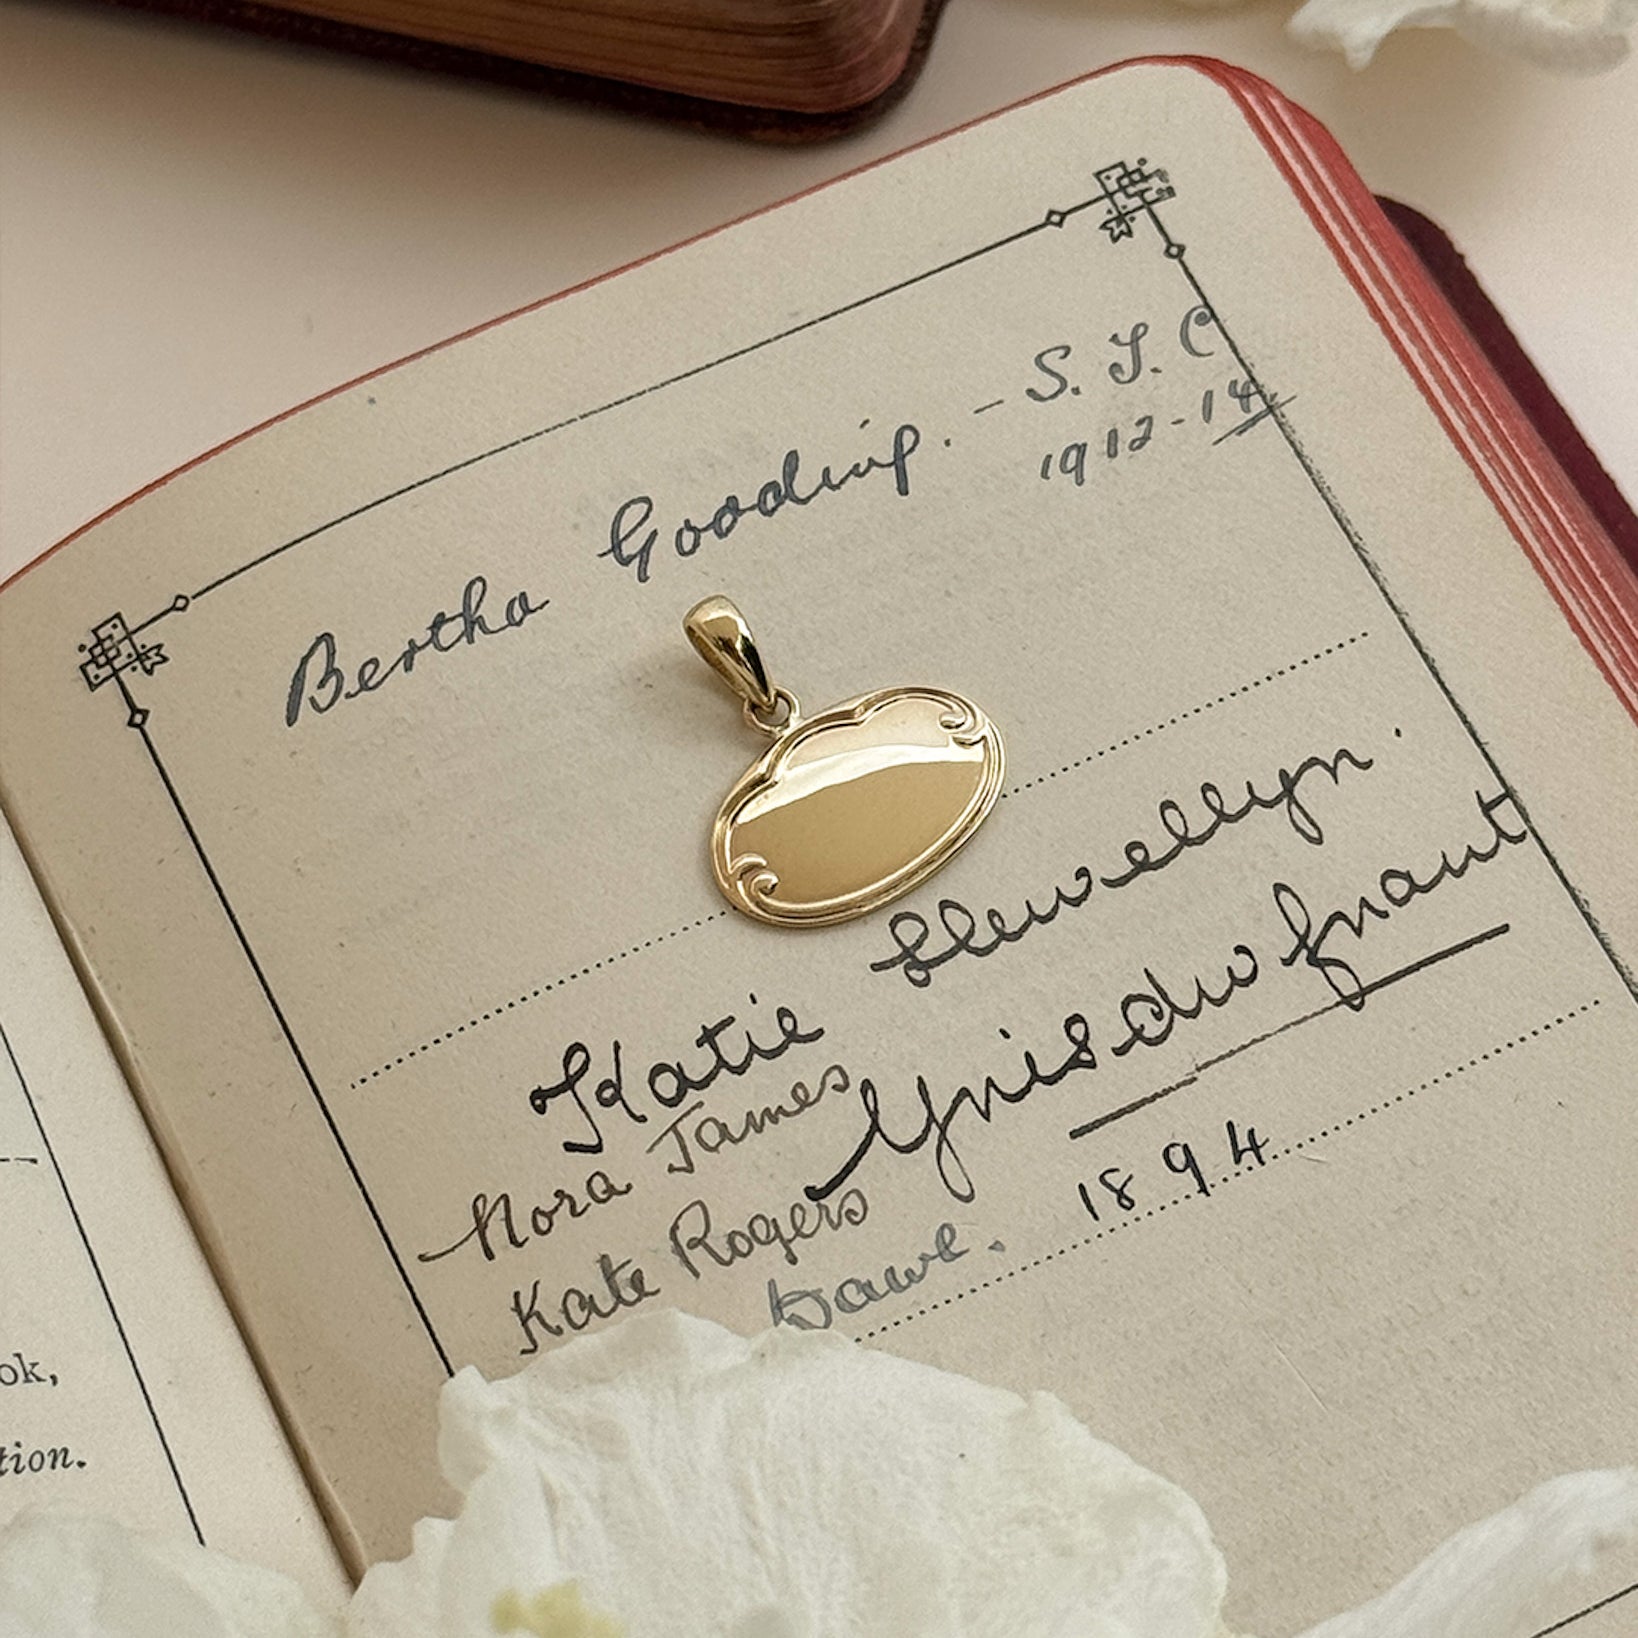 Bertha Gooding. - S. T. C
1912-14
Katie Llewellyn.
Nora James Ynisdw fnant
Kate Rogers 1894
Dawe.
ok,
tion.